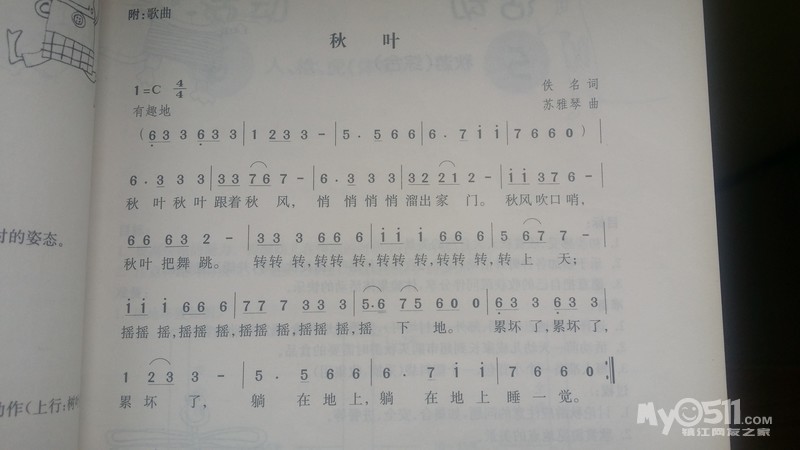 附：歌曲
秋 叶
1=C 4/4
佚 名 词
有趣地
苏雅琴 曲
( 6 3 3 6 3 3 | 1 2 3 3 - | 5 . 5 6 6 | 6 . 7 i i | 7 6 6 0 ) |
6 . 3 3 3 | 3 3 7 6 7 - | 6 . 3 3 3 | 3 2 2 1 2 - | i i 3 7 6 - |
秋 叶 秋 叶 跟着 秋 风， 悄 悄 悄 悄 溜出 家 门。 秋风 吹口 哨，
6 6 6 3 2 - | 3 3 3 6 6 6 | i i i 6 6 6 | 5 6 7 7 - |
时的姿态。
秋叶 把舞 跳。 转转 转,转转 转,转转 转,转转 转,转 上 天；
i i i 6 6 6 | 7 7 7 3 3 3 | 5 . 6 7 5 6 0 0 | 6 3 3 6 3 3 |
摇摇 摇,摇摇 摇,摇摇 摇,摇摇 摇,摇 下 地。 累坏 了,累坏 了，
1 2 3 3 - | 5 . 5 6 6 | 6 . 7 i i | 7 6 6 0 :‖
动作(上行:
累 坏 了， 躺 在 地 上,躺 在 地 上 睡 一 觉。
My0511.com
镇江网友之家